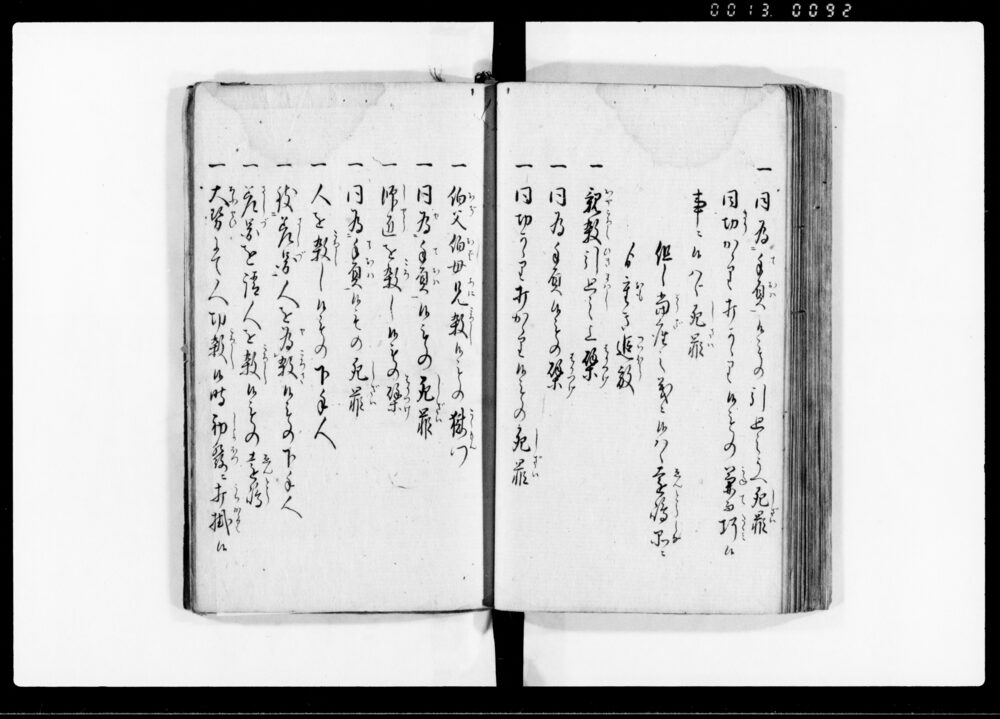 0013 0092
一 同為手負候もの 引廻之上 死罪
一 同切かゝり打かゝり候もの
事ニ候ハヽ 死罪
但し当座之儀ニ候ハヽ 遠島 又ハ
重キ追放
一 親殺 引廻之上 磔
一 同為手負候もの 磔
一 同切かゝり打かゝり候もの 死罪
一 伯父伯母兄殺候もの 獄門
一 同為手負候もの 死罪
一 師匠を殺し候もの 磔
一 同為手負候もの 死罪
一 人を殺し候もの 下手人
一 人を為殺候もの 下手人
一 差図を請人を殺候もの 遠島
一 大勢にて人切殺候時 初発ニ打掛候